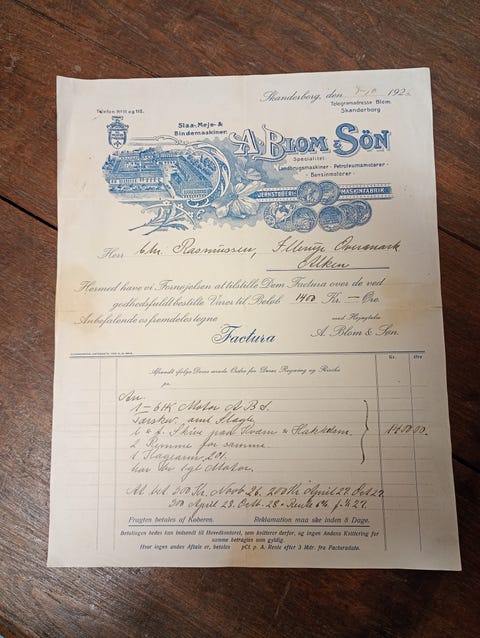 Skanderborg, den 192
Telefon No 11 og 112.
Telegramadresse Blom.
Skanderborg
Slaa-, Meje- &
Bindemaskiner.
A. BLOM SÖN
Specialitet:
Landbrugsmaskiner - Petroleumsmotorer -
Bensinmotorer -
JERNSTØBERI & MASKINFABRIK
Herr Chr. Rasmussen, Illerup Overmark
Alken
Hermed have vi Fornøjelsen at tilstille Dem Factura over de ved
godhedsfuldt bestilte Varer til Beløb 1400 Kr. — Øre.
Anbefalende os fremdeles tegne
med Højagtelse
Factura
A. Blom & Søn.
Kr. Øre
Afsendt ifølge Deres ærede Ordre for Deres Regning og Risiko
pr.
An.
1 – 6 HK Motor A.B.S.
Tærskv. amt
1 Skive paa & Hakkelsm.
2 Remme for samme.
1 201.
har De Motor.
1400 00.
At bet 300 Kr. Novb 26. 200 Kr April 27. Oct 27.
300 April 28. Octb. 28 + Rente 6% f. 27.
Fragten betales af Køberen.
Reklamation maa ske inden 8 Dage.
Betalingen bedes kun indsendt til Hovedkontoret, som kvitterer derfor, og ingen Andens Kvittering for
samme betragtes som gyldig.
Hvor ingen anden Aftale er, betales pCt. p. A. Rente efter 3 Mdr. fra Facturadato.